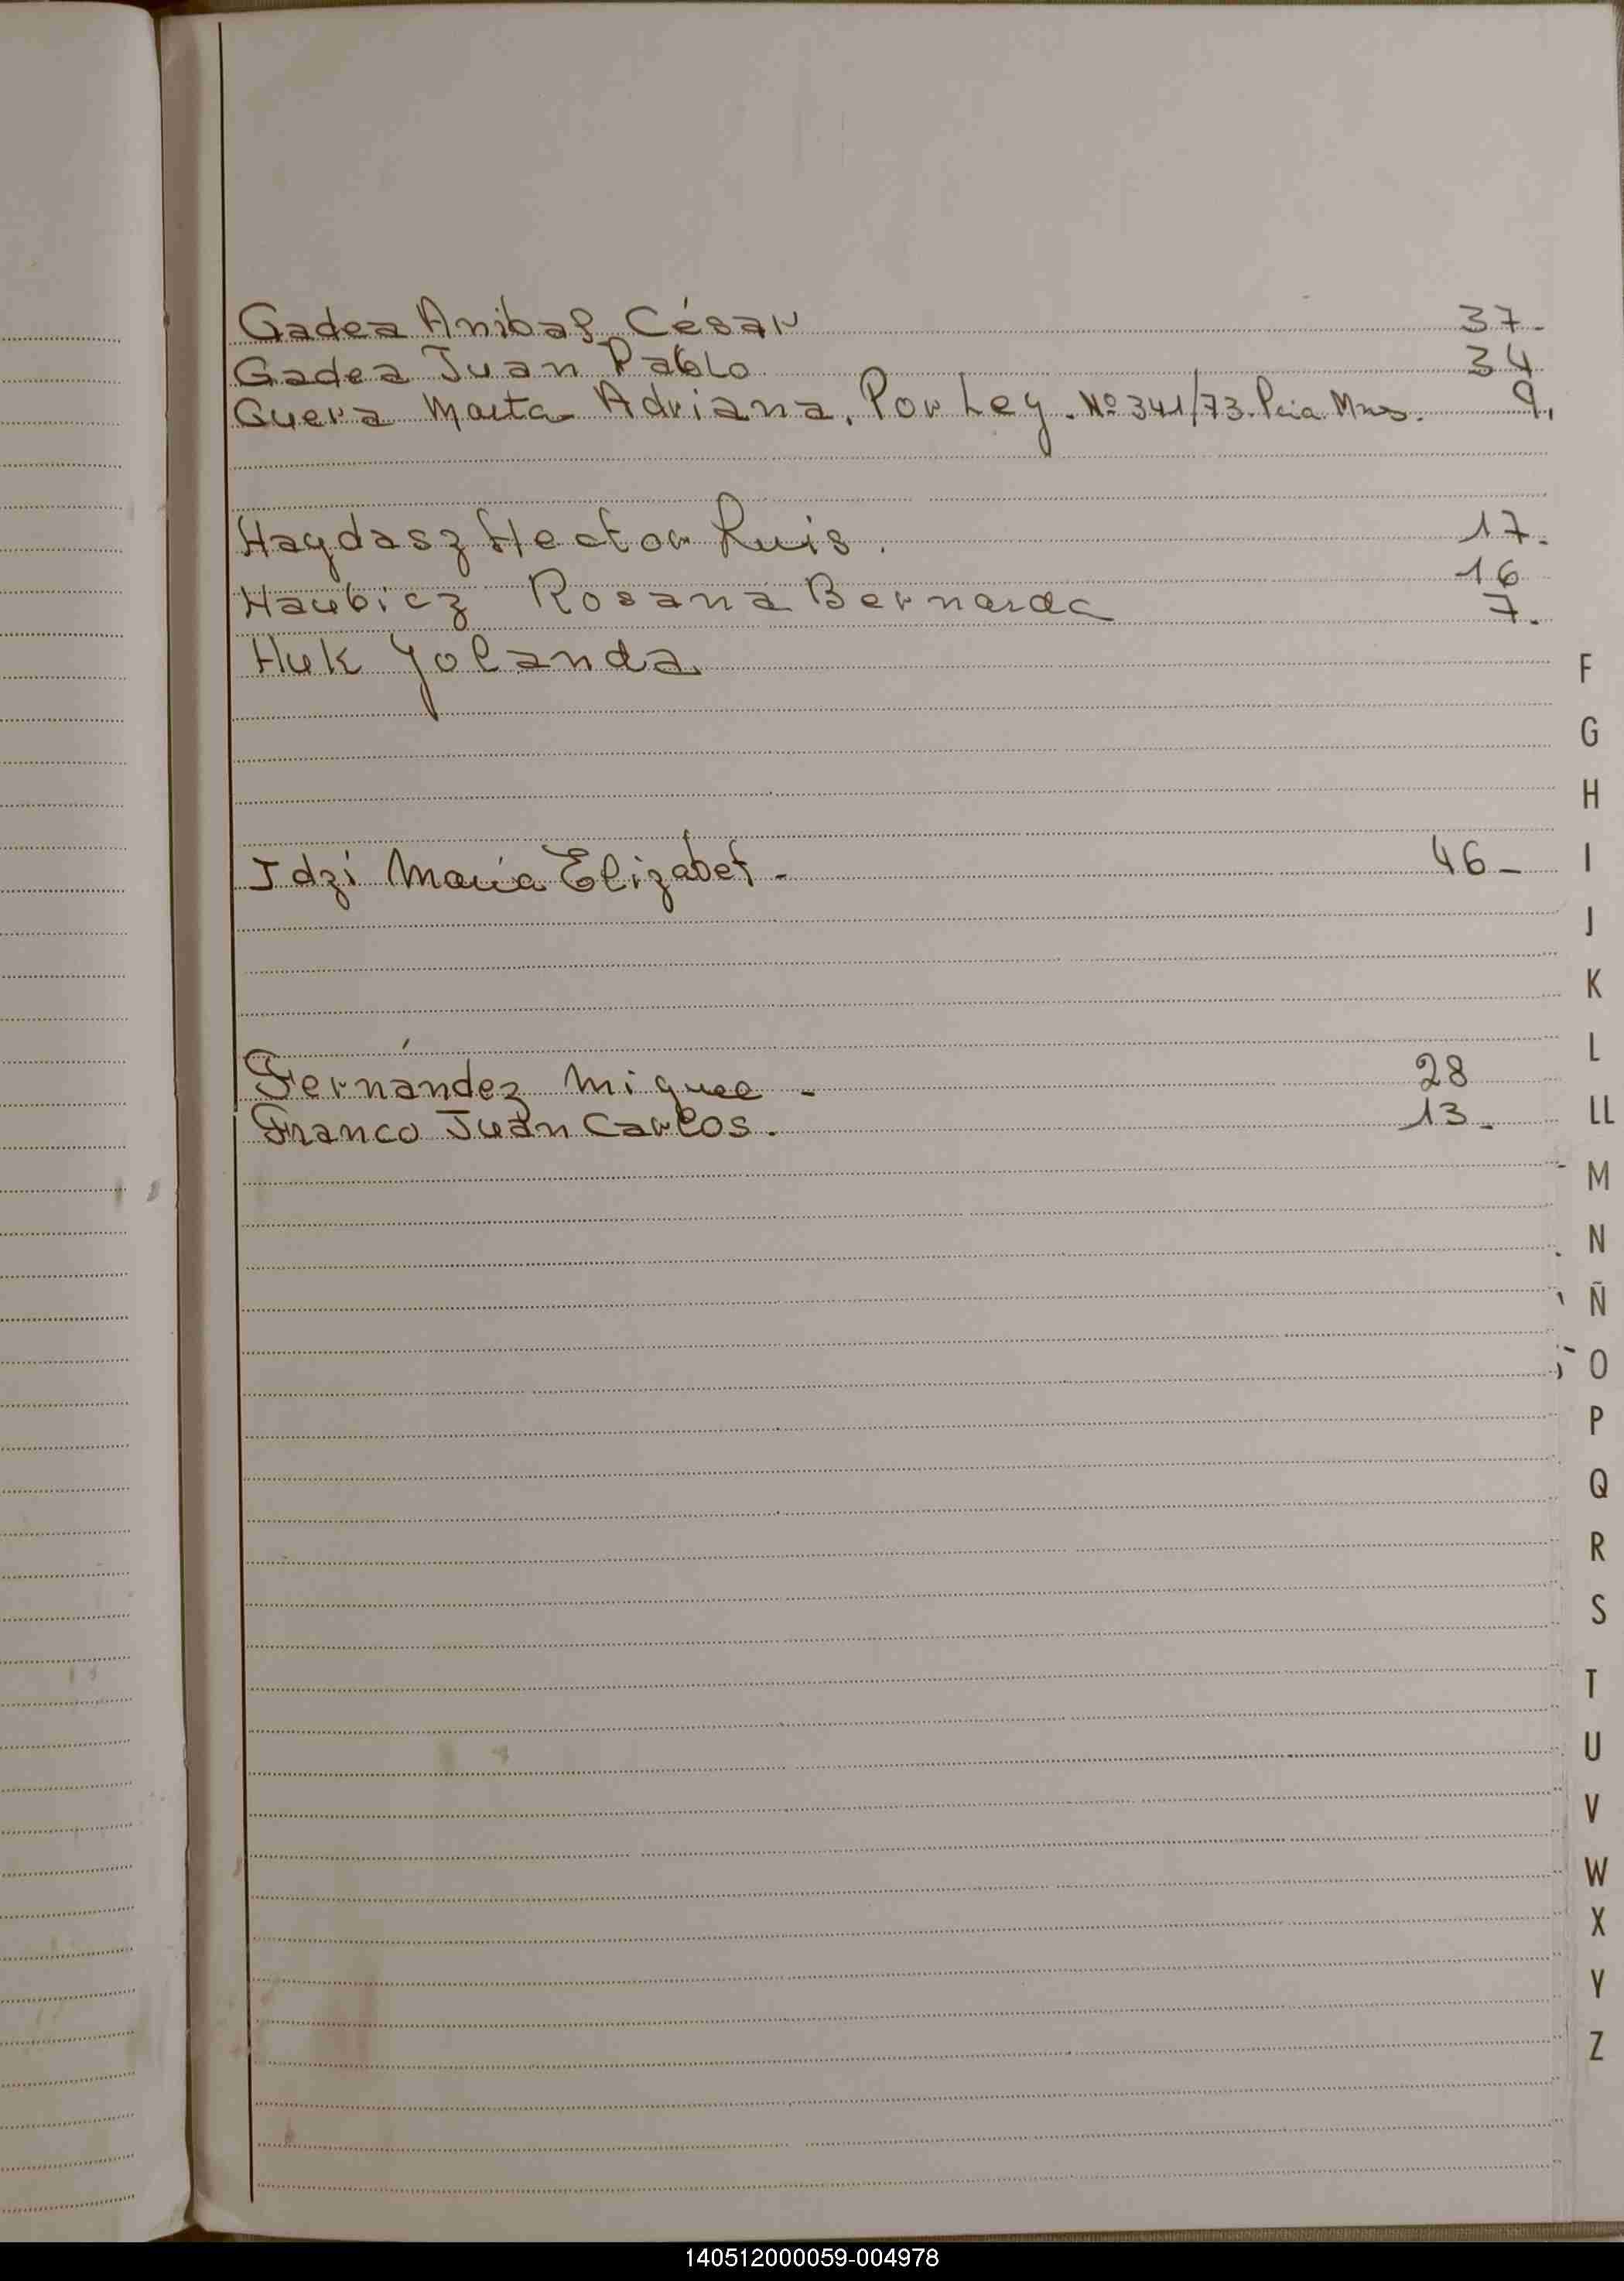 Gadea Anibal César 37-
Gadea Juan Pablo 34
Guera Marta Adriana. Por Ley. Nº 341/73. Pcia. Mns. 9.
Haydasz Hector Luis. 17.
Haubicz Rosana Bernarda 16
Huk Yolanda 7.
Idzi María Elizabet - 46-
Fernández Miguel - 28
Franco Juan Carlos. 13-
F
G
H
I
J
K
L
LL
M
N
Ñ
O
P
Q
R
S
T
U
V
W
X
Y
Z
140512000059-004978